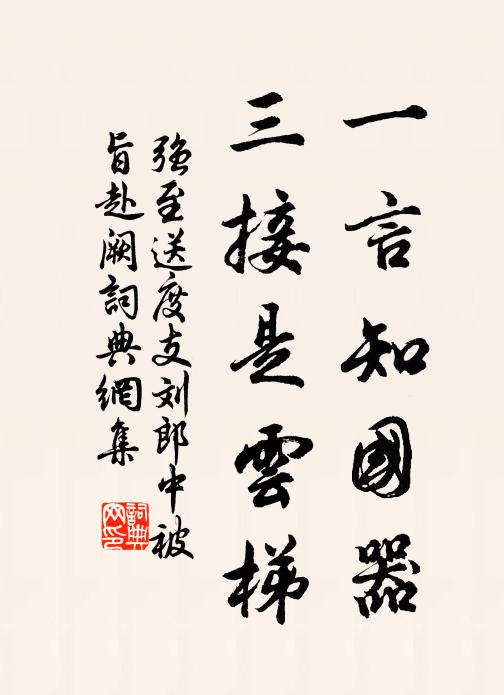 一言知國器
三接是雲梯
强至送度支刘郎中被
旨赴阙詞典網集
詞典
网印